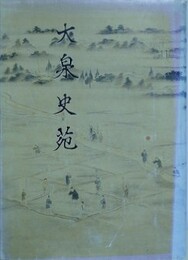 大泉史苑